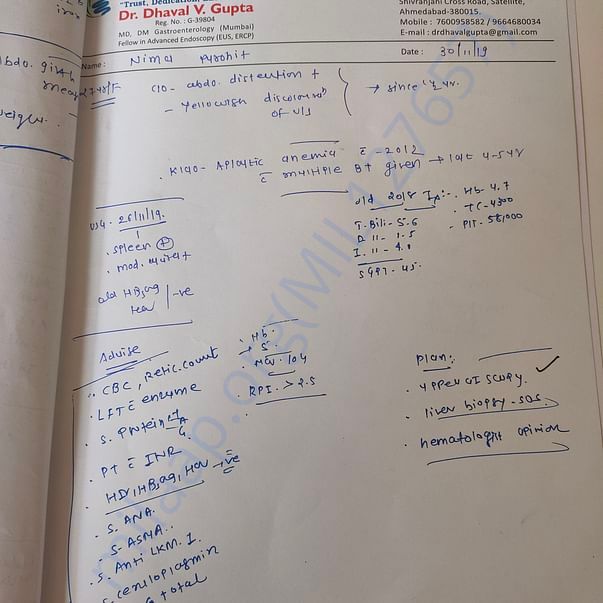 "Trust, Dedication,
Dr. Dhaval V. Gupta
Reg. No.: G-39804
MD, DM Gastroenterology (Mumbai)
Fellow in Advanced Endoscopy (EUS, ERCP)
Shivranjani Cross Road, Satellite,
Ahmedabad-380015.
Mobile : 7600958582 / 9664680034
E-mail : drdhavalgupta@gmail.com
Name : Nima Purohit
Date : 30/11/19
abdo. girth
27 yr/F
C/O - abdo. distention +
- Yellowish discolourn
of U/S
→ since 1/2 yr.
K/C/O - Aplastic anemia c - 2012
c multiple BT given → last 4-5 yr
USG. 26/11/19.
. spleen +
. mod. ascites +
old 2018 Ix:-
. Hb- 4.7
. TC- 4300
. Plt- 58,000
T. Bili- 5.6
D. 11- 1.5
I. 11- 4.1
SGPT- 45.
old HBsAg
HCV
-ve
Advise
. CBC, Retic. count
. LFT c enzyme
. S. Protein A
G
. PT c INR
. HIV, HBsAg, HCV -ve
. S. ANA.
. S- ASMA.
. S. Anti LKM. 1.
. S. ceruloplasmin
total
. Hb.
5
. MCV. 104
. RPI. > 2.5
Plan:
. Upper GI SCOPY. ✓
. liver biopsy - SOS.
. hematologist opinion
milaap.org(MIL12765